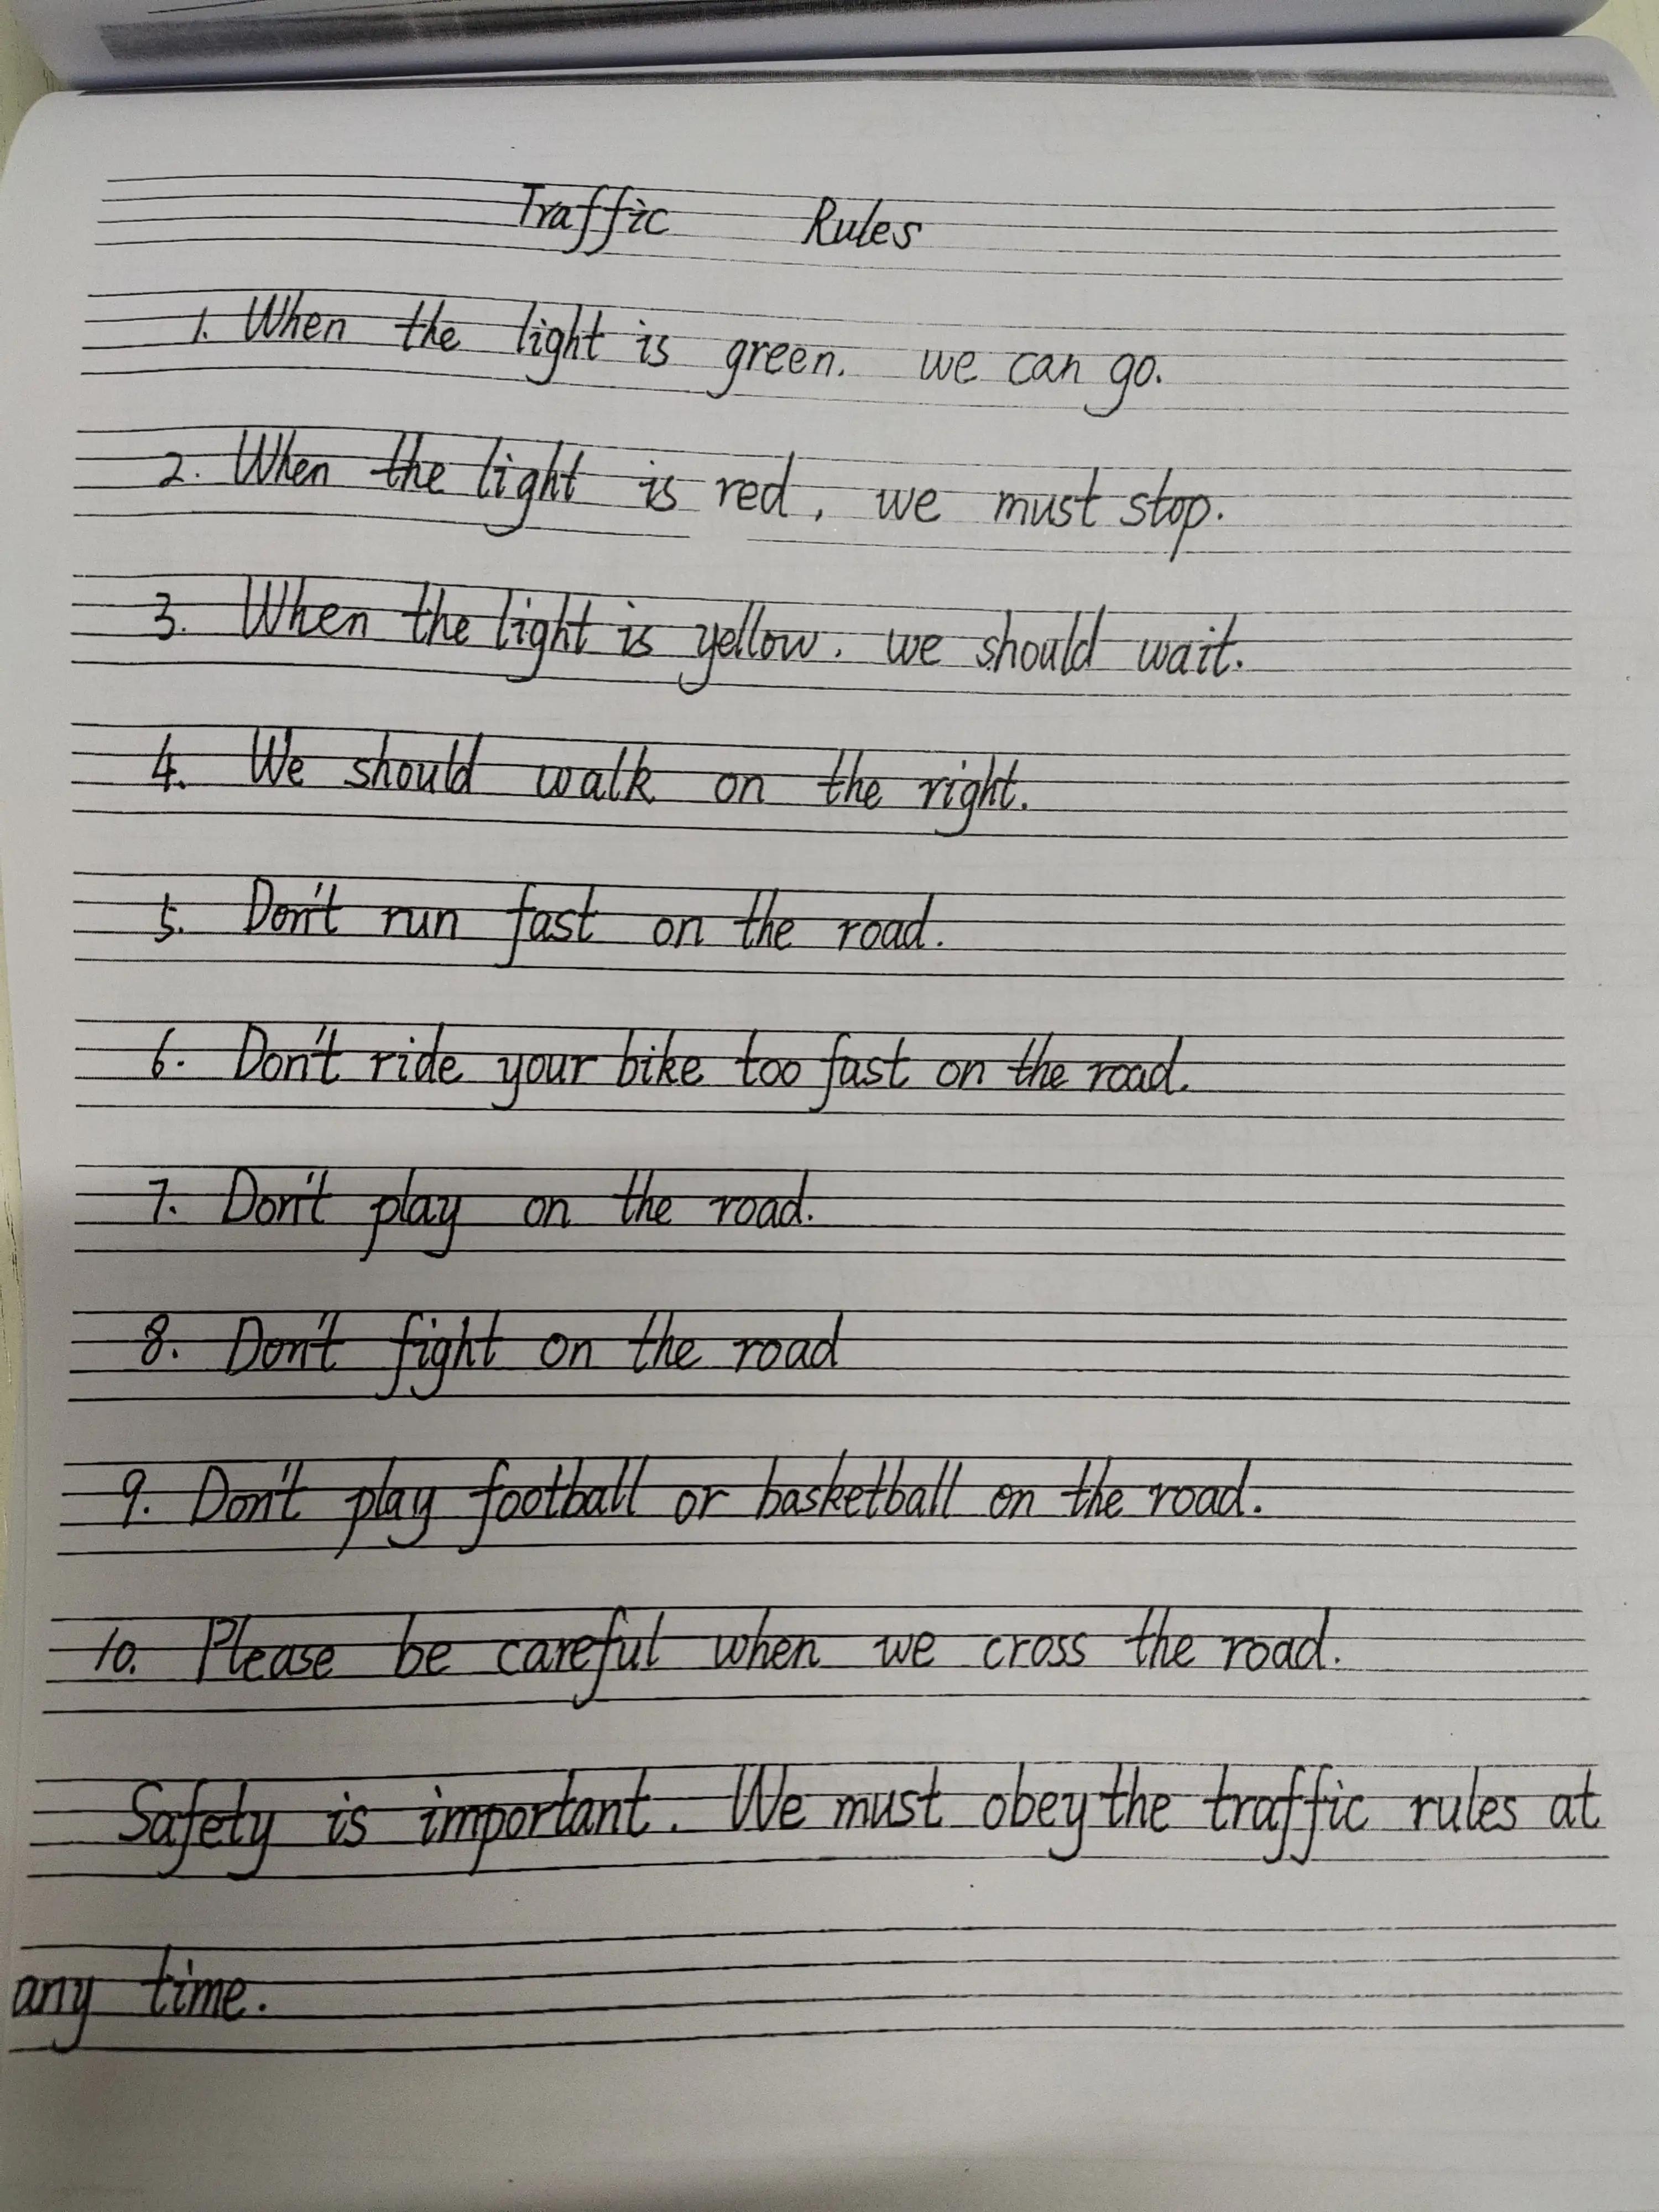 Traffic Rules
1. When the light is green. we can go.
2. When the light is red, we must stop.
3. When the light is yellow. we should wait.
4. We should walk on the right.
5. Don't run fast on the road.
6. Don't ride your bike too fast on the road.
7. Don't play on the road.
8. Don't fight on the road
9. Don't play football or basketball on the road.
10. Please be careful when we cross the road.
Safety is important. We must obey the traffic rules at
any time.